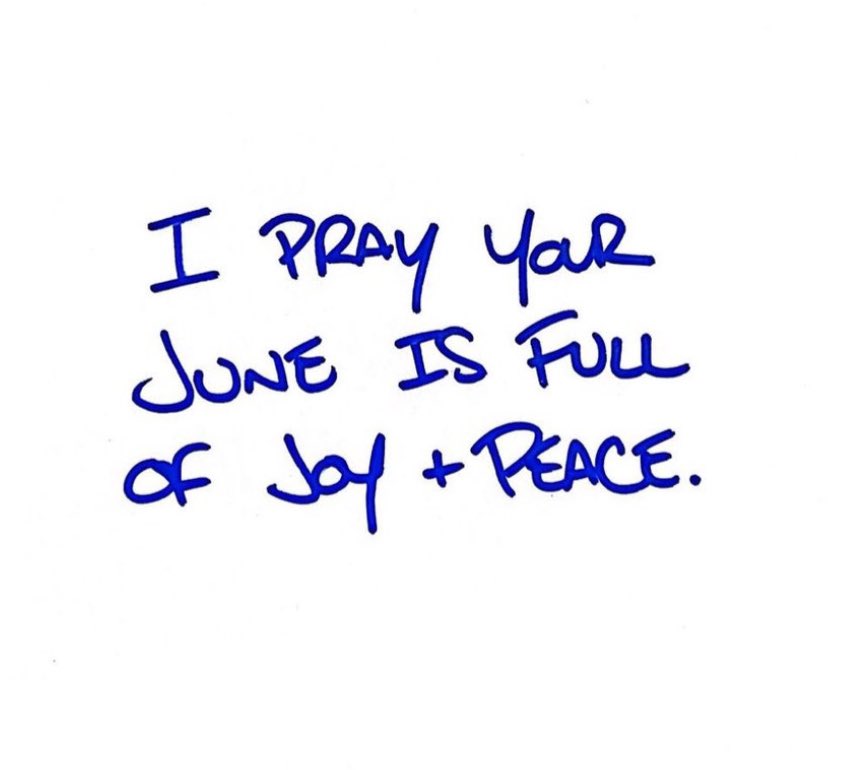 I PRAY YOUR
JUNE IS FULL
OF JOY + PEACE.